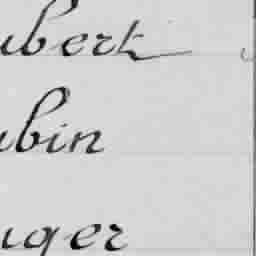 ubert
ubin
uger